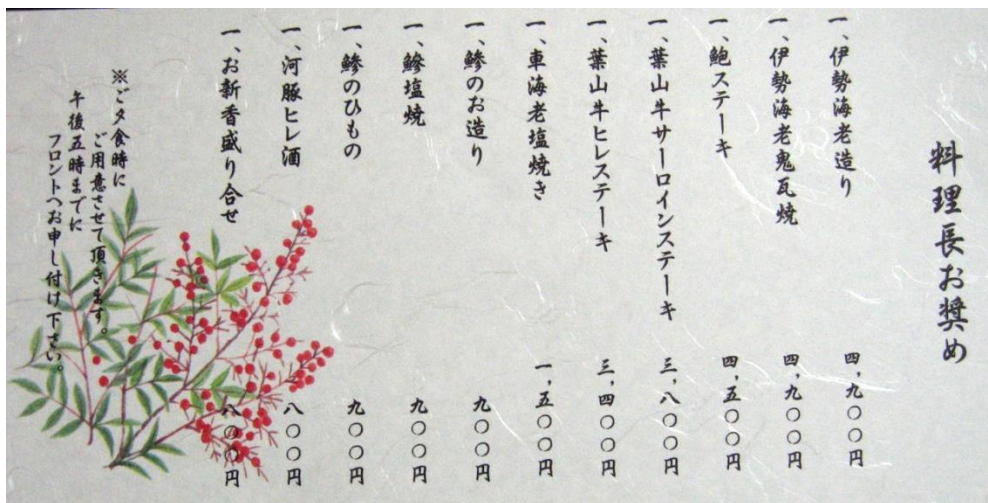 料理長お奨め
一、伊勢海老造り 四,九〇〇円
一、伊勢海老鬼瓦焼 四,九〇〇円
一、鮑ステーキ 四,五〇〇円
一、葉山牛サーロインステーキ 三,八〇〇円
一、葉山牛ヒレステーキ 三,四〇〇円
一、車海老塩焼き 一,五〇〇円
一、鯵のお造り 九〇〇円
一、鯵塩焼 九〇〇円
一、鯵のひもの 九〇〇円
一、河豚ヒレ酒 八〇〇円
一、お新香盛り合せ 八〇〇円
※ご夕食時に
ご用意させて頂きます。
午後五時までに
フロントへお申し付け下さい。